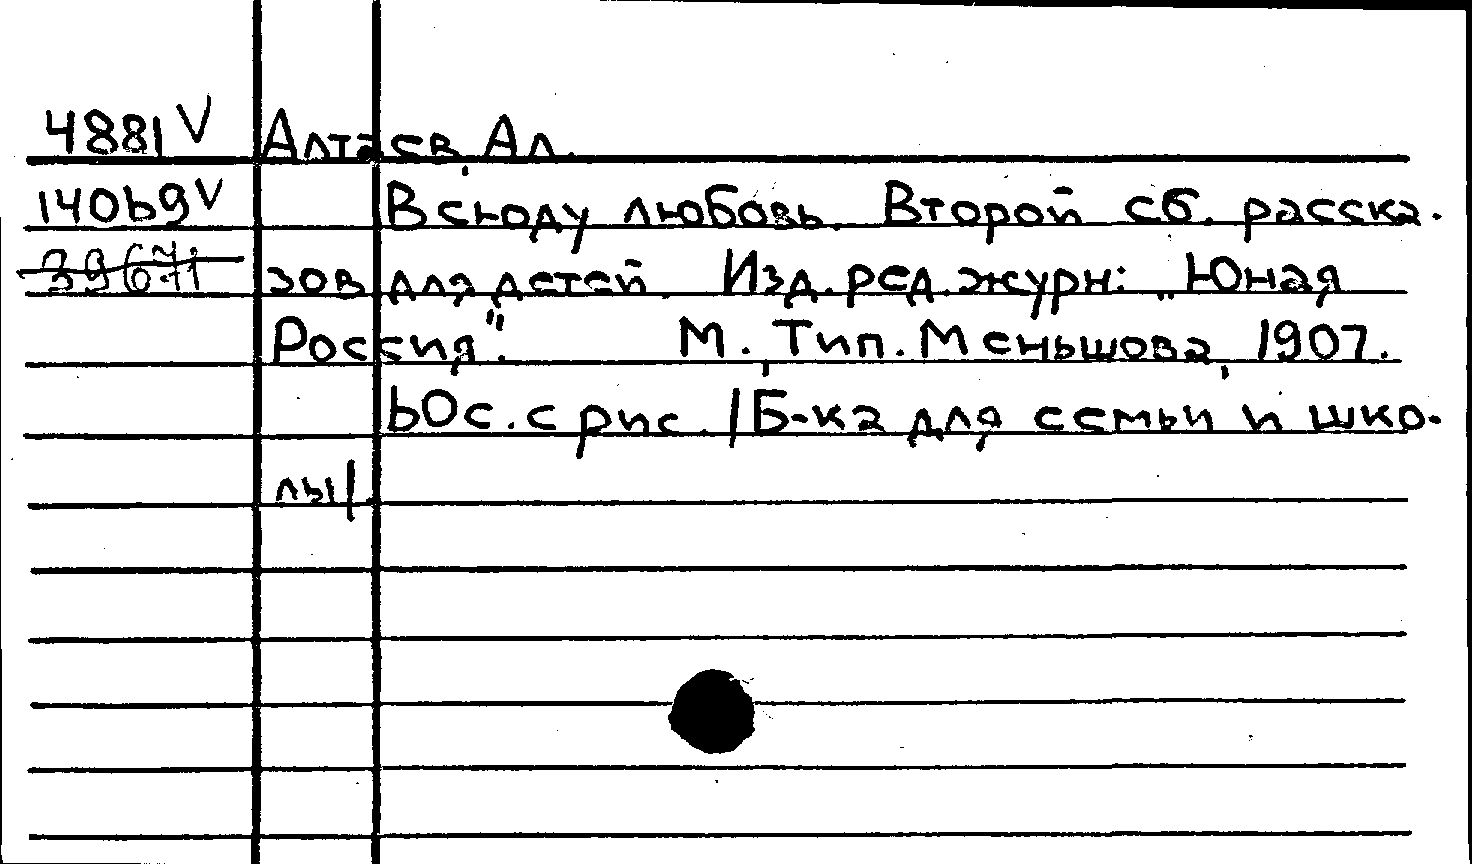 4881 V Алтаев, Ал.
14069 V Всюду любовь. Второй сб. расска-
39671 зов для детей. Изд. ред. журн: „Юная
Россия". М. Тип. Меньшова, 1907.
60с. с рис. /Б-ка для семьи и шко-
лы/.